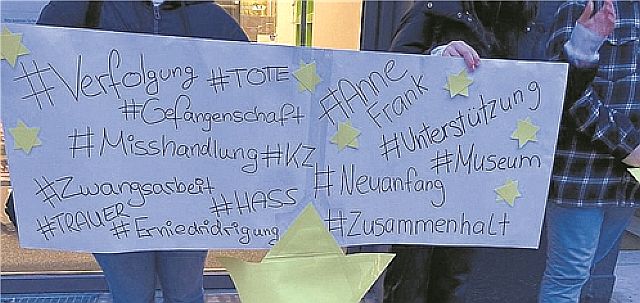 #Verfolgung #TOTE
#Gefangenschaft
#Misshandlung #KZ
#Zwangsarbeit
#HASS
#TRAUER
#Erniedridrigung
#Anne
Frank
#Unterstützung
#Museum
#Neuanfang
#Zusammenhalt